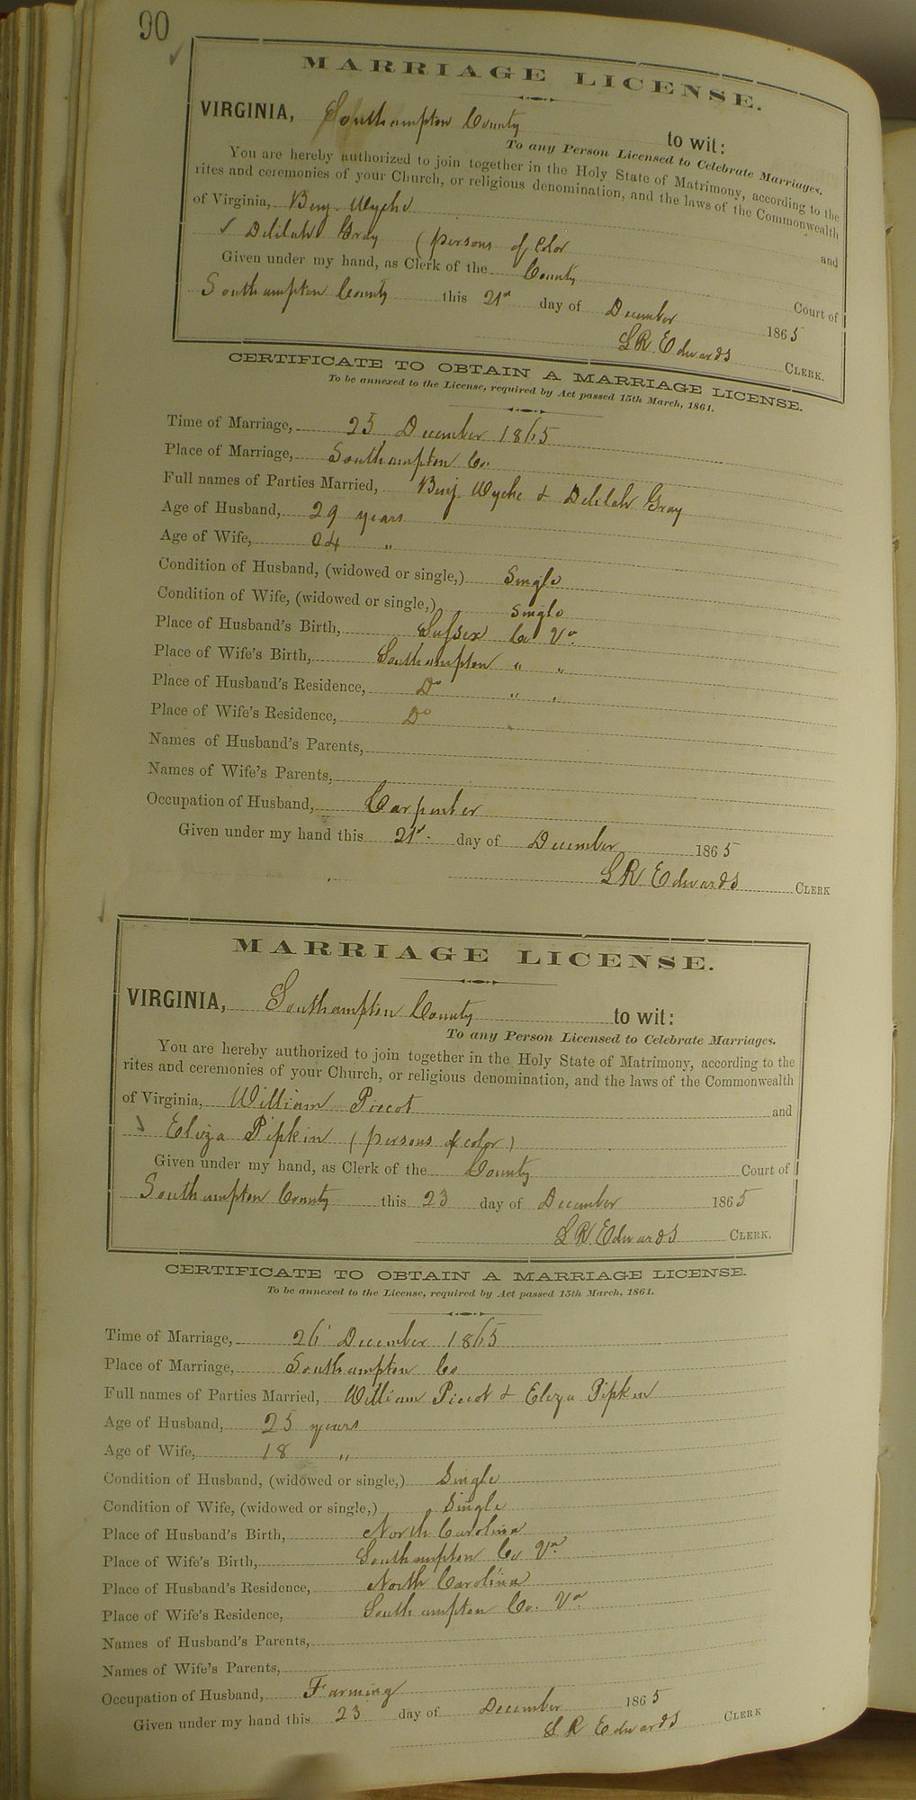 90
MARRIAGE LICENSE.
VIRGINIA, Southampton County to wit:
To any Person Licensed to Celebrate Marriages.
You are hereby authorized to join together in the Holy State of Matrimony, according to the
rites and ceremonies of your Church, or religious denomination, and the laws of the Commonwealth
of Virginia, Benj. Wyche and
✓ Delilah Gray (persons of Color
Given under my hand, as Clerk of the County Court of
Southampton County this 21st day of December 1865
L R Edwards CLERK.
CERTIFICATE TO OBTAIN A MARRIAGE LICENSE.
To be annexed to the License, required by Act passed 15th March, 1861.
Time of Marriage, 25 December 1865
Place of Marriage, Southampton Co.
Full names of Parties Married, Benj. Wyche & Delilah Gray
Age of Husband, 29 years
Age of Wife, "
Condition of Husband, (widowed or single,) Single
Condition of Wife, (widowed or single,) Single
Place of Husband's Birth, Sussex Co Va
Place of Wife's Birth, Southampton " "
Place of Husband's Residence, Do " "
Place of Wife's Residence, Do "
Names of Husband's Parents,
Names of Wife's Parents,
Occupation of Husband, Carpenter
Given under my hand this 21st day of December 1865
L R Edwards CLERK
MARRIAGE LICENSE.
VIRGINIA, Southampton County to wit:
To any Person Licensed to Celebrate Marriages.
You are hereby authorized to join together in the Holy State of Matrimony, according to the
rites and ceremonies of your Church, or religious denomination, and the laws of the Commonwealth
of Virginia, William Piccot and
Eliza Pipkin (persons of color)
Given under my hand, as Clerk of the County Court of
Southampton County this 23 day of December 1865
L R. Edwards CLERK.
CERTIFICATE TO OBTAIN A MARRIAGE LICENSE.
To be annexed to the License, required by Act passed 15th March, 1861.
Time of Marriage, 26 December 1865
Place of Marriage, Southampton Co
Full names of Parties Married, William Piccot & Eliza Pipkin
Age of Husband, 25 years
Age of Wife, 18 "
Condition of Husband, (widowed or single,) Single
Condition of Wife, (widowed or single,) Single
Place of Husband's Birth, North Carolina
Place of Wife's Birth, Southampton Co Va
Place of Husband's Residence, North Carolina
Place of Wife's Residence, Southampton Co. Va
Names of Husband's Parents,
Names of Wife's Parents,
Occupation of Husband, Farming
Given under my hand this 23 day of December 1865
L R Edwards CLERK